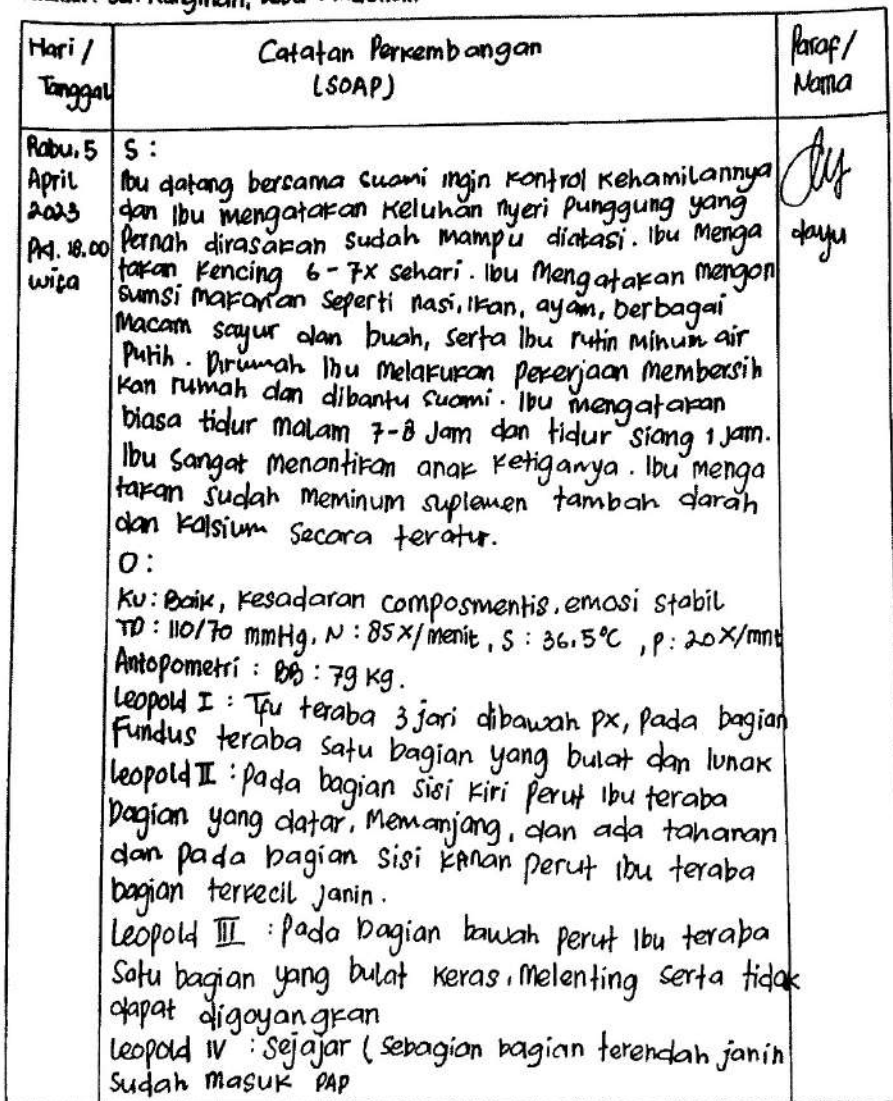 Hari / Tanggal
Catatan Perkembangan
(SOAP)
Paraf/ Nama
Rabu, 5 April 2023 Pkl. 18.00 wita
S :
Ibu datang bersama suami ingin kontrol kehamilannya
dan Ibu mengatakan keluhan nyeri punggung yang
Pernah dirasakan sudah mampu diatasi. Ibu Menga
takan kencing 6-7x sehari. Ibu Mengatakan mengon
sumsi makanan seperti nasi, ikan, ayam, berbagai
Macam sayur dan buah, serta Ibu rutin minum air
Putih. Dirumah Ibu melakukan pekerjaan Membersih
kan rumah dan dibantu suami. Ibu mengatakan
biasa tidur malam 7-8 Jam dan tidur siang 1 jam.
Ibu Sangat menantikan anak ketiganya. Ibu menga
takan sudah meminum suplemen tambah darah
dan kalsium secara teratur.
O :
KU : Baik, kesadaran composmentis, emosi stabil
TD : 110/70 mmHg, N : 85x/menit, S : 36.5°C, P : 20x/mnt
Antopometri : BB : 79 kg.
Leopold I : Tfu teraba 3 jari dibawah px, Pada bagian
Fundus teraba satu bagian yang bulat dan lunak
Leopold II : Pada bagian sisi kiri perut Ibu teraba
bagian yang datar, Memanjang, dan ada tahanan
dan pada bagian sisi kanan perut ibu teraba
bagian terkecil janin.
Leopold III : Pada bagian bawah perut Ibu teraba
Satu bagian yang bulat keras, Melenting serta tidak
dapat digoyangkan
Leopold IV : Sejajar (Sebagian bagian terendah janin
Sudah masuk PAP
dayu